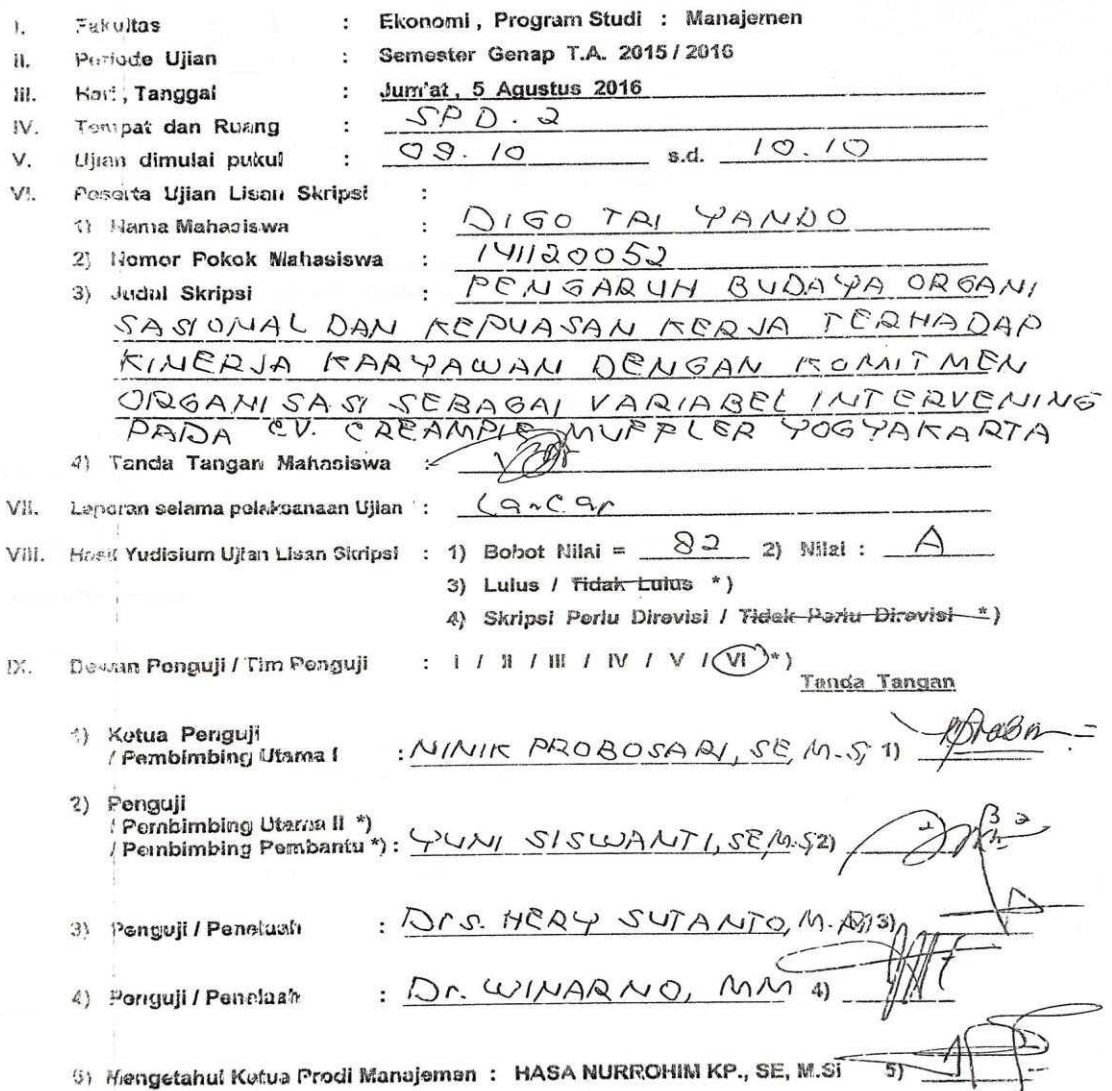 I. Fakultas : Ekonomi, Program Studi : Manajemen
II. Periode Ujian : Semester Genap T.A. 2015 / 2016
III. Hari, Tanggal : Jum'at, 5 Agustus 2016
IV. Tempat dan Ruang : SPD. 2
V. Ujian dimulai pukul : 09.10 s.d. 10.10
VI. Peserta Ujian Lisan Skripsi :
1) Nama Mahasiswa : DIGO TRI YANDO
2) Nomor Pokok Mahasiswa : 141120052
3) Judul Skripsi : PENGARUH BUDAYA ORGANI
SASIONAL DAN KEPUASAN KERJA TERHADAP
KINERJA KARYAWAN DENGAN KOMITMEN
ORGANISASI SEBAGAI VARIABEL INTERVENING
PADA CV. CREAMPIE MUFFLER YOGYAKARTA
4) Tanda Tangan Mahasiswa :
VII. Laporan selama pelaksanaan Ujian : Lancar
VIII. Hasil Yudisium Ujian Lisan Skripsi : 1) Bobot Nilai = 82 2) Nilai : A
3) Lulus / Tidak Lulus *)
4) Skripsi Perlu Direvisi / Tidak Perlu Direvisi *)
IX. Dewan Penguji / Tim Penguji : I / II / III / IV / V / VI *)
Tanda Tangan
1) Ketua Penguji
/ Pembimbing Utama I : NINIK PROBOSARI, SE, M.S, 1)
2) Penguji
/ Pembimbing Utama II *)
/ Pembimbing Pembantu *) : YUNI SISWANTI, SE, M.S, 2)
3) Penguji / Penelaah : Drs. HERY SUTANTO, 3)
4) Penguji / Penelaah : Dr. WINARNO, MM 4)
5) Mengetahui Ketua Prodi Manajemen : HASA NURROHIM KP., SE, M.Si 5)